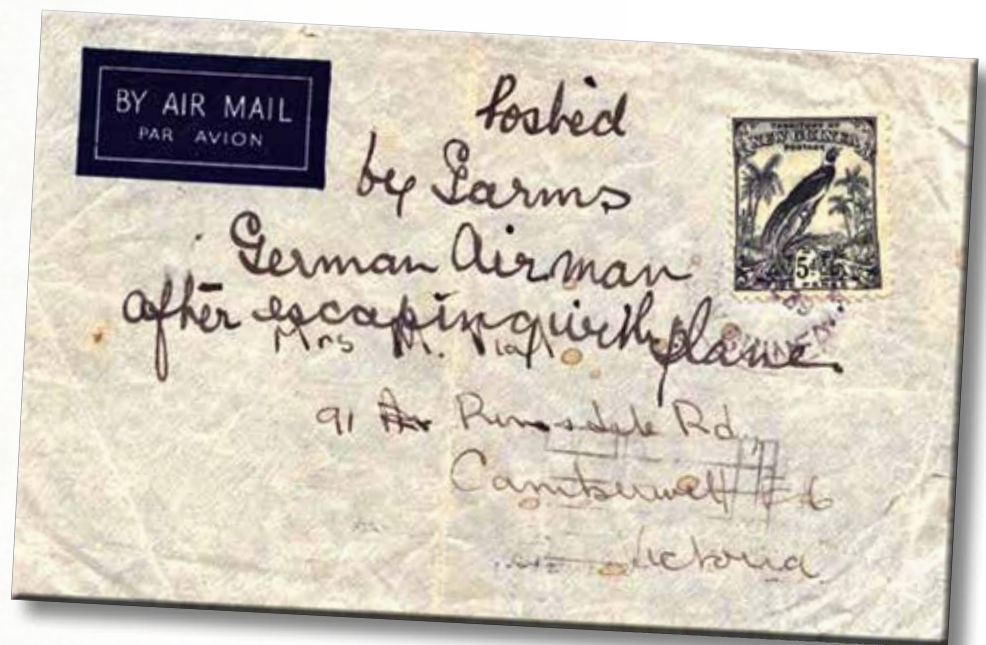 BY AIR MAIL
PAR AVION
Posted
by Garms
German Airman
after escaping with plane.
TERRITORY OF
NEW GUINEA
POSTAGE
5d
Mrs M.
91 Rd,
Camberwell E 6
Victoria